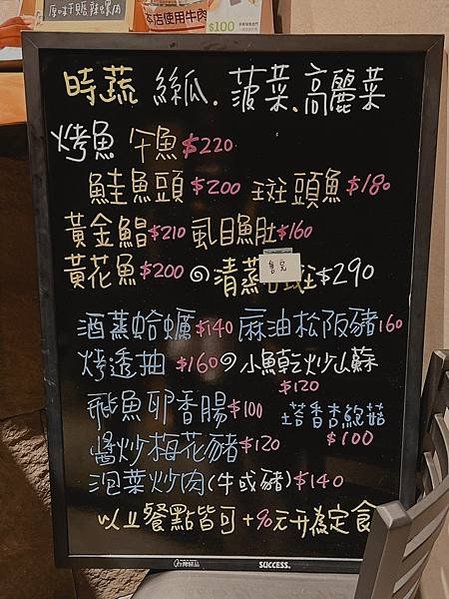 原味干貝醬辣椒肉
本店使用牛肉
$100
時蔬 絲瓜.菠菜.高麗菜
烤魚 午魚$220
鮭魚頭$200 斑頭魚$180
黃金鯧$210 虱目魚肚$160
黃花魚$200 清蒸 斑$290
售完
酒蒸蛤蠣$140 麻油松阪豬160
烤透抽 $160 小魚乾炒山蘇
$120
飛魚卵香腸$100 塔香杏鮑菇
$100
醬炒梅花豬$120
泡菜炒肉(牛或豬)$140
以上餐點皆可+90元升為定食
SUCCESS.